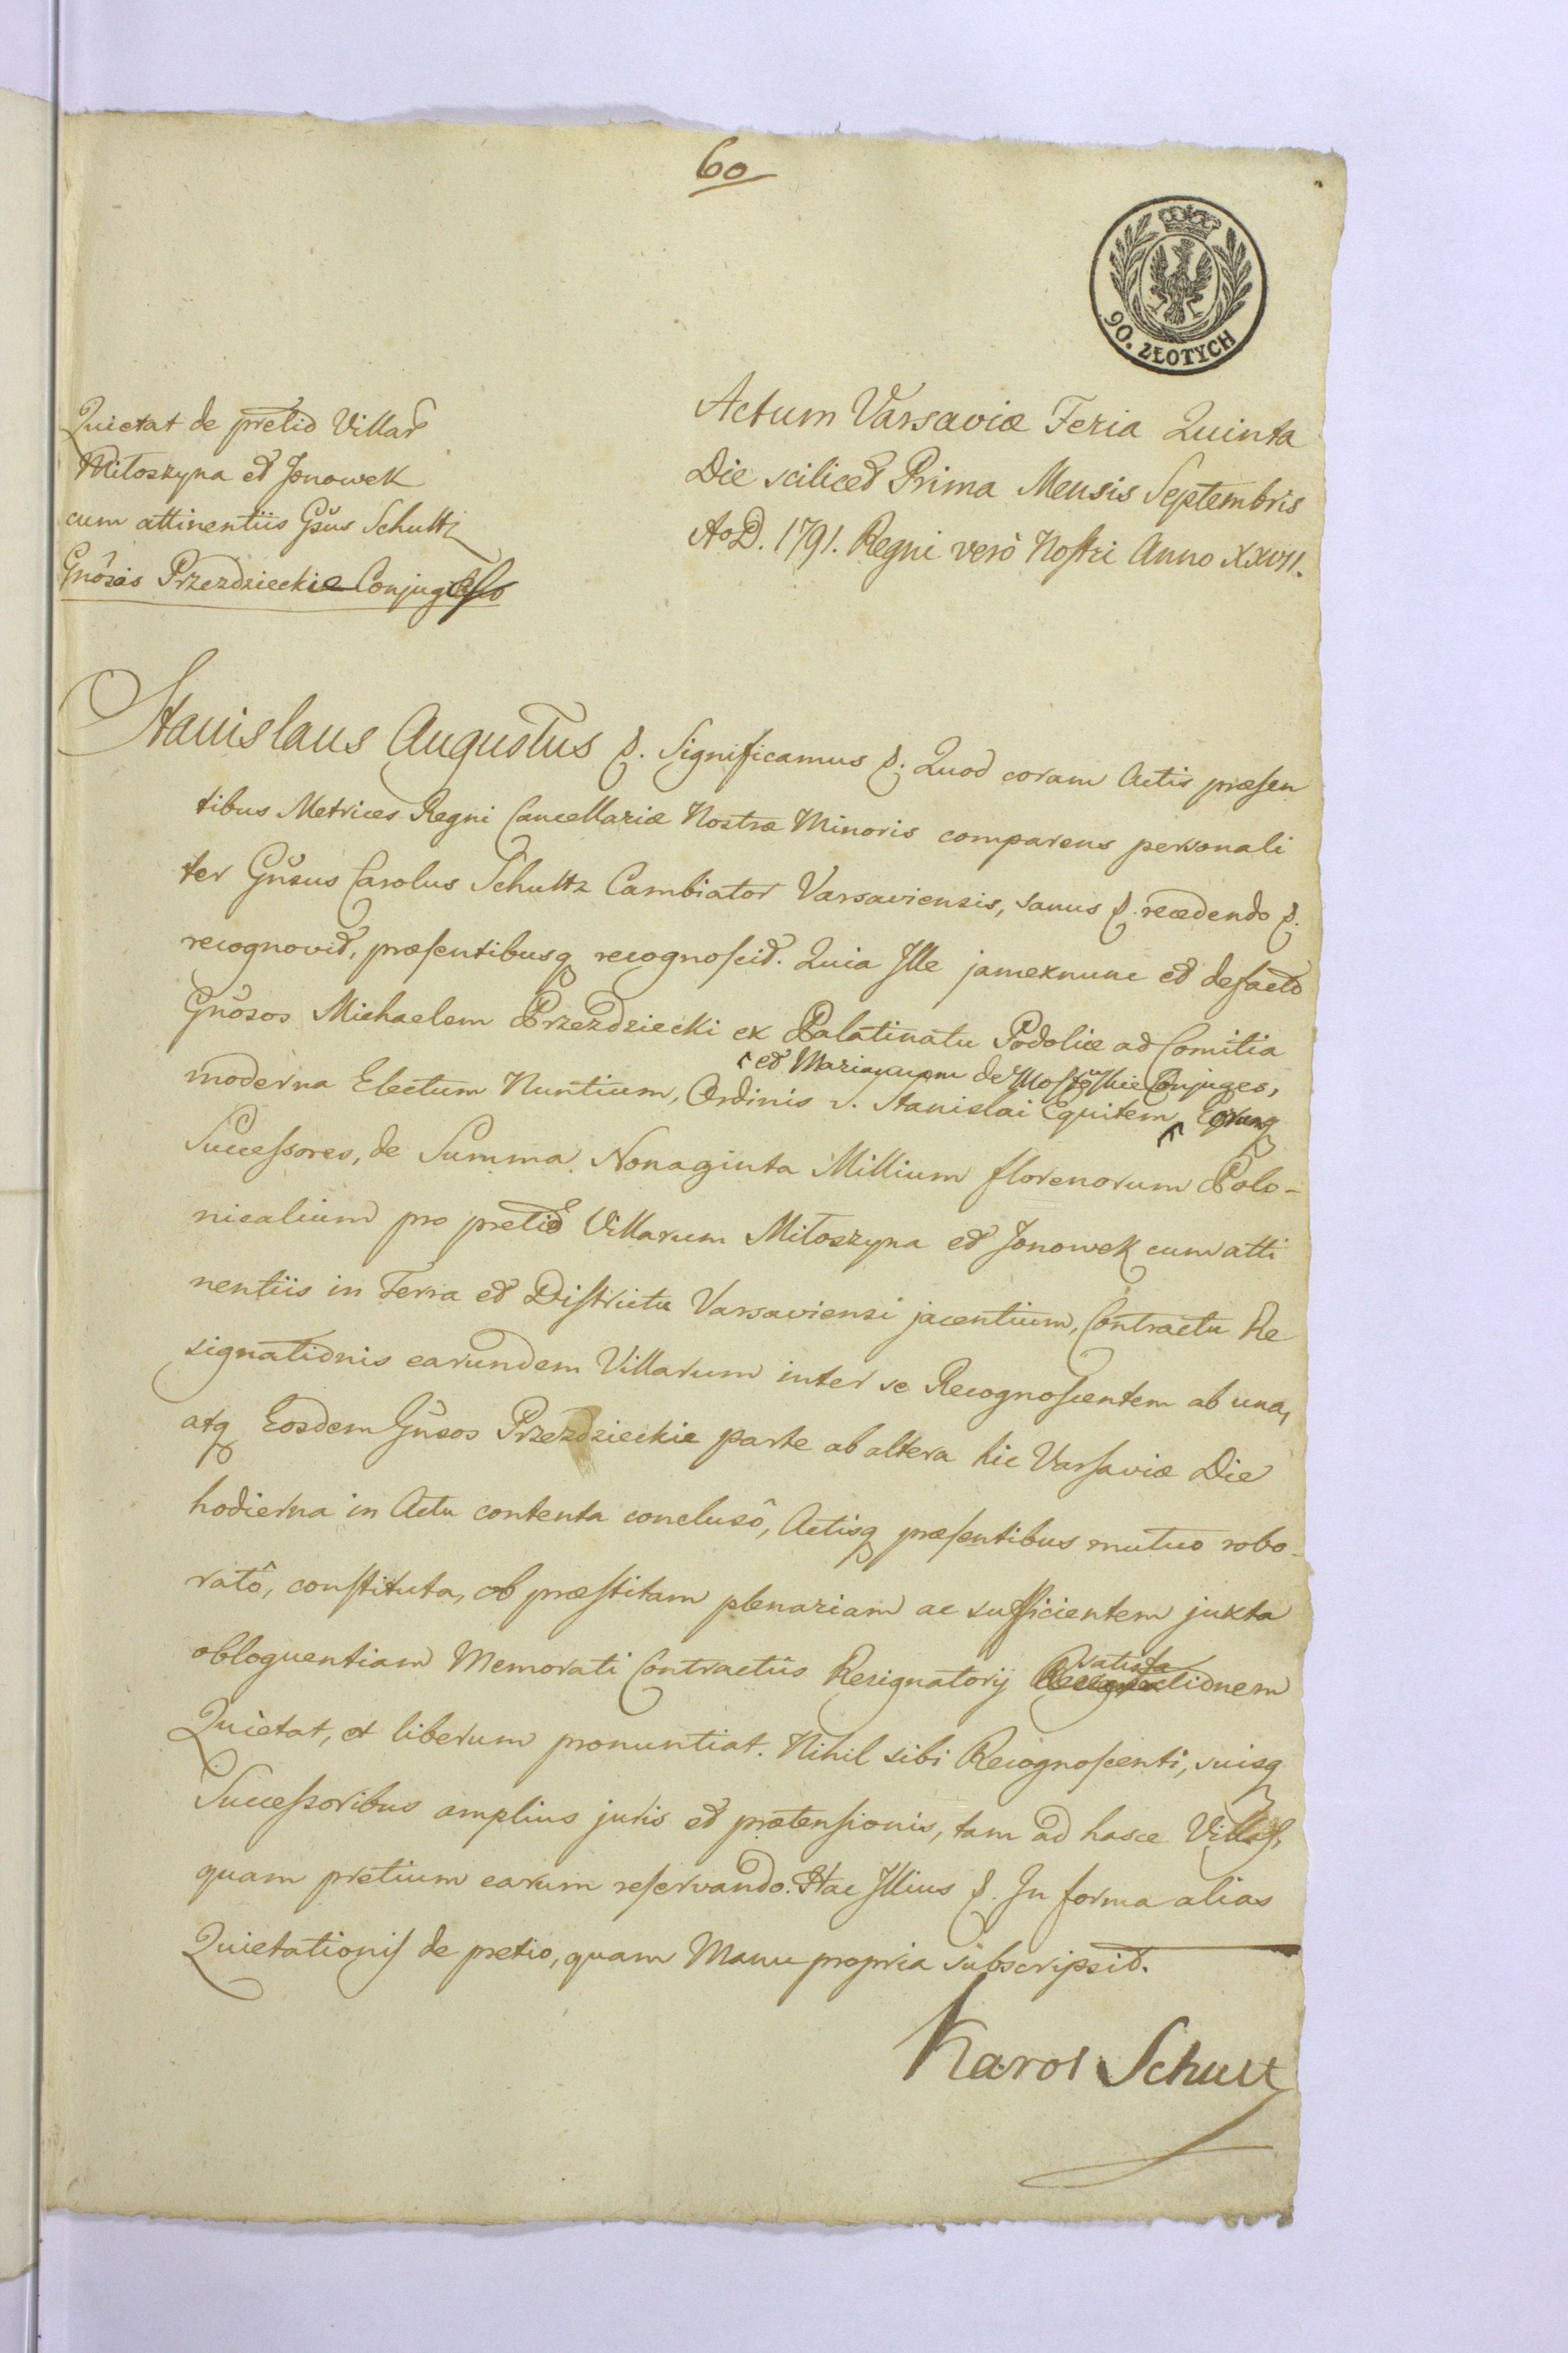 60
90. ZŁOTYCH
Quietat de pretio Villar
Miłoszyna et Jonowek
cum attinentiis Gsus Schultz
Gnosis Przezdzieckie Conjuges
Actum Varsaviæ Feria Quinta
Die scilicet Prima Mensis Septembris
AoD. 1791. Regni verò Nostri Anno XXVII.
Stanislaus Augustus &. Significamus &. Quod coram Actis præsen
tibus Metrices Regni Cancellariæ Nostræ Minoris comparens personali
ter Gnsus Carolus Schultz Cambiator Varsaviensis, sanus &. recedendo &.
recognovit, præsentibusq recognoscit. Quia Ille jamexnunc et defacto
Gnosos Michaelem Przezdziecki ex Palatinatu Podoliæ ad Comitia
et Mariannam de Conjuges,
moderna Electum Nuntium, Ordinis S. Stanislai Equitem, Eorumq
Successores, de Summa Nonaginta Millium florenorum Polo-
nicalium pro pretio Villarum Miłoszyna et Jonowek cum atti
nentiis in Terra et Districtu Varsaviensi jacentium, Contractu Re
signationis earundem Villarum inter se Recognoscentem ab una,
atq Eosdem Gnsos Przezdzieckie parte ab altera hic Varsaviæ Die
hodierna in Actu contenta conclusô, Actisq præsentibus mutuo robo-
ratô, constituta, ob præstitam plenariam ac sufficientem juxta
obloquentiam Memorati Contractûs Resignatorij satisfactionem
Quietat, et liberum pronuntiat. Nihil sibi Recognoscenti, suisq
Successoribus amplius juris et prætensionis, tam ad hasce Villas,
quam pretium earum reservando. Hac Illius &. In forma alias
Quietationis de pretio, quam Manu propria subscripsit.
Karol Schultz